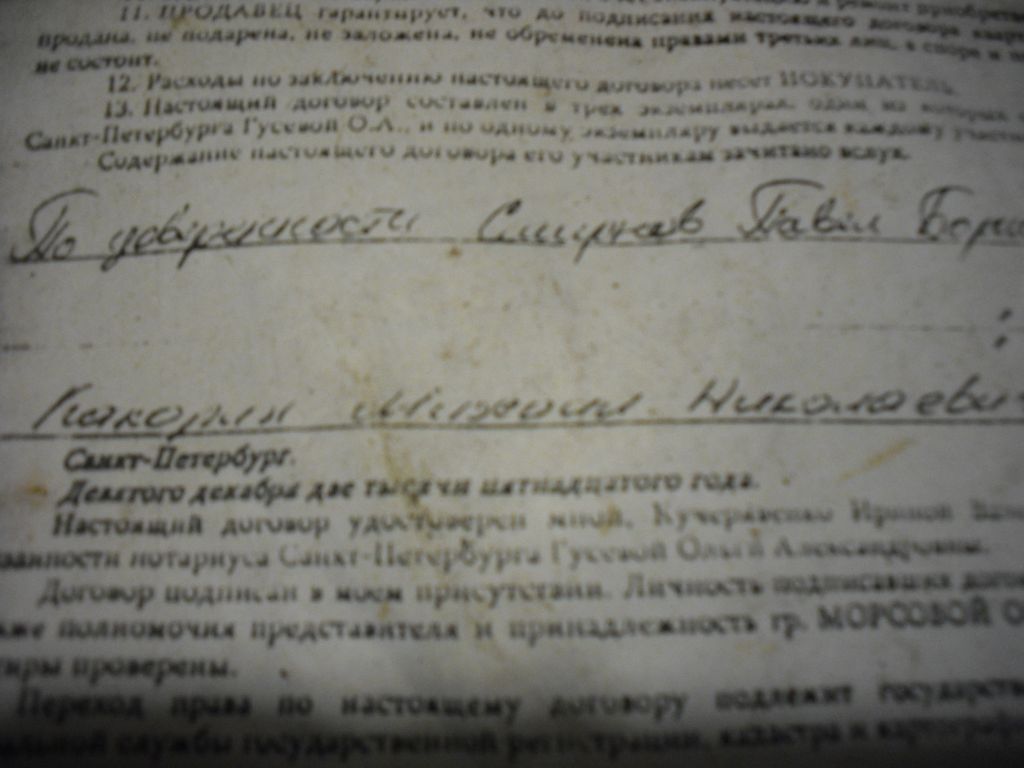 11. ПРОДАВЕЦ гарантирует, что до подписания настоящего договора
продана, не подарена, не заложена, не обременена правами третьих лиц, в споре и
не состоит.
12. Расходы по заключению настоящего договора несет ПОКУПАТЕЛЬ.
13. Настоящий договор составлен в трех экземплярах, один из которых
Санкт-Петербурга Гусевой О.А., и по одному экземпляру выдается каждому
Содержание настоящего договора его участникам зачитано вслух.
По Смирнов Павел
Михаил Николаеви
Санкт-Петербург.
Девятого декабря две тысячи пятнадцатого года.
Настоящий договор удостоверен мной, Ириной
нотариуса Санкт-Петербурга Гусевой Ольги Александровны.
Договор подписан в моем присутствии. Личность подписавших
полномочия представителя и принадлежность гр. МОРСОВОЙ О
проверены.
Переход права по настоящему договору подлежит
службы государственной регистрации, кадастра и